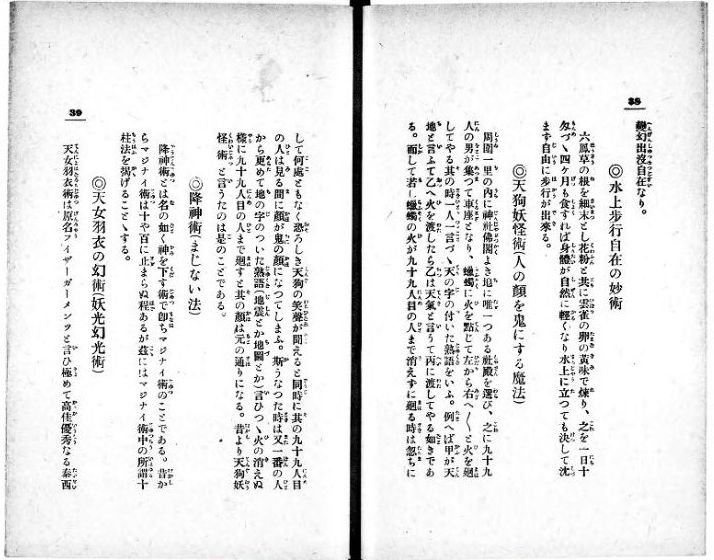 38
變幻出沒自在なり。
◎水上步行自在の妙術
六鳳草の根を細末とし花粉と共に雲雀の卵の黃味で煉り、之を一日十
匁づゝ四ケ月も食すれば身體が自然に輕くなり水上に立つても決して沈
まず自由に步行が出來る。
◎天狗妖怪術(人の顏を鬼にする魔法)
周圍一里の內に神社佛閣よき地に唯一つある社殿を選び、之に九十九
人の男が集つて車座となり、蠟蠋に火を點じて左から右へ〱と火を廻
してやる其の時一人一言づゝ天の字の付いた熟語をいふ。例へば甲が天
地と言ふて乙へ火を渡したら乙は天氣と言うて丙に渡してやる如きであ
る。而して若し蠟蠋の火が九十九人目の人まで消えずに廻る時は忽ちに
39
して何處ともなく恐ろしき天狗の笑聲が聞えると同時に其の九十九人目
の人は見る間に顏が鬼の顏になつてしまふ。斯うなつた時は又一番の人
から更めて地の字のついた熟語(地震とか地圖とか)言ひつゝ火の消えぬ
樣に九十九人目の人まで廻すと其の顏は元の通りになる。昔より天狗妖
怪術と言うたのは是のことである。
◎降神術(まじない法)
降神術とは名の如く神を下す術で卽ちマジナイ術のことである。昔か
らマジナイ術は十や百に止まらぬ程あるが茲にはマジナイ術中の所謂十
柱法を揭げることゝする。
◎天女羽衣の幻術(妖光幻光術)
天女羽衣術は原名フイザーガーメンツと言ひ極めて高佳優秀なる泰西